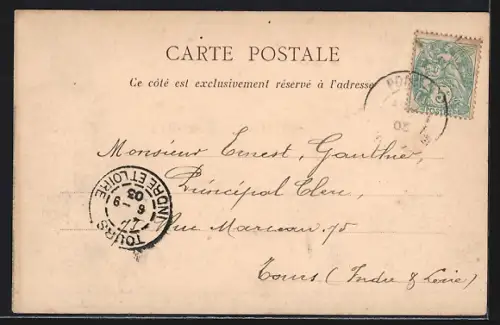 CARTE POSTALE
Ce côté est exclusivement réservé à l'adresse
Monsieur Ernest Gauthier
Principal Clerc
77 Rue Marceau 75
Tours (Indre & Loire)
TOURS
INDRE ET LOIRE
6 - 9
03